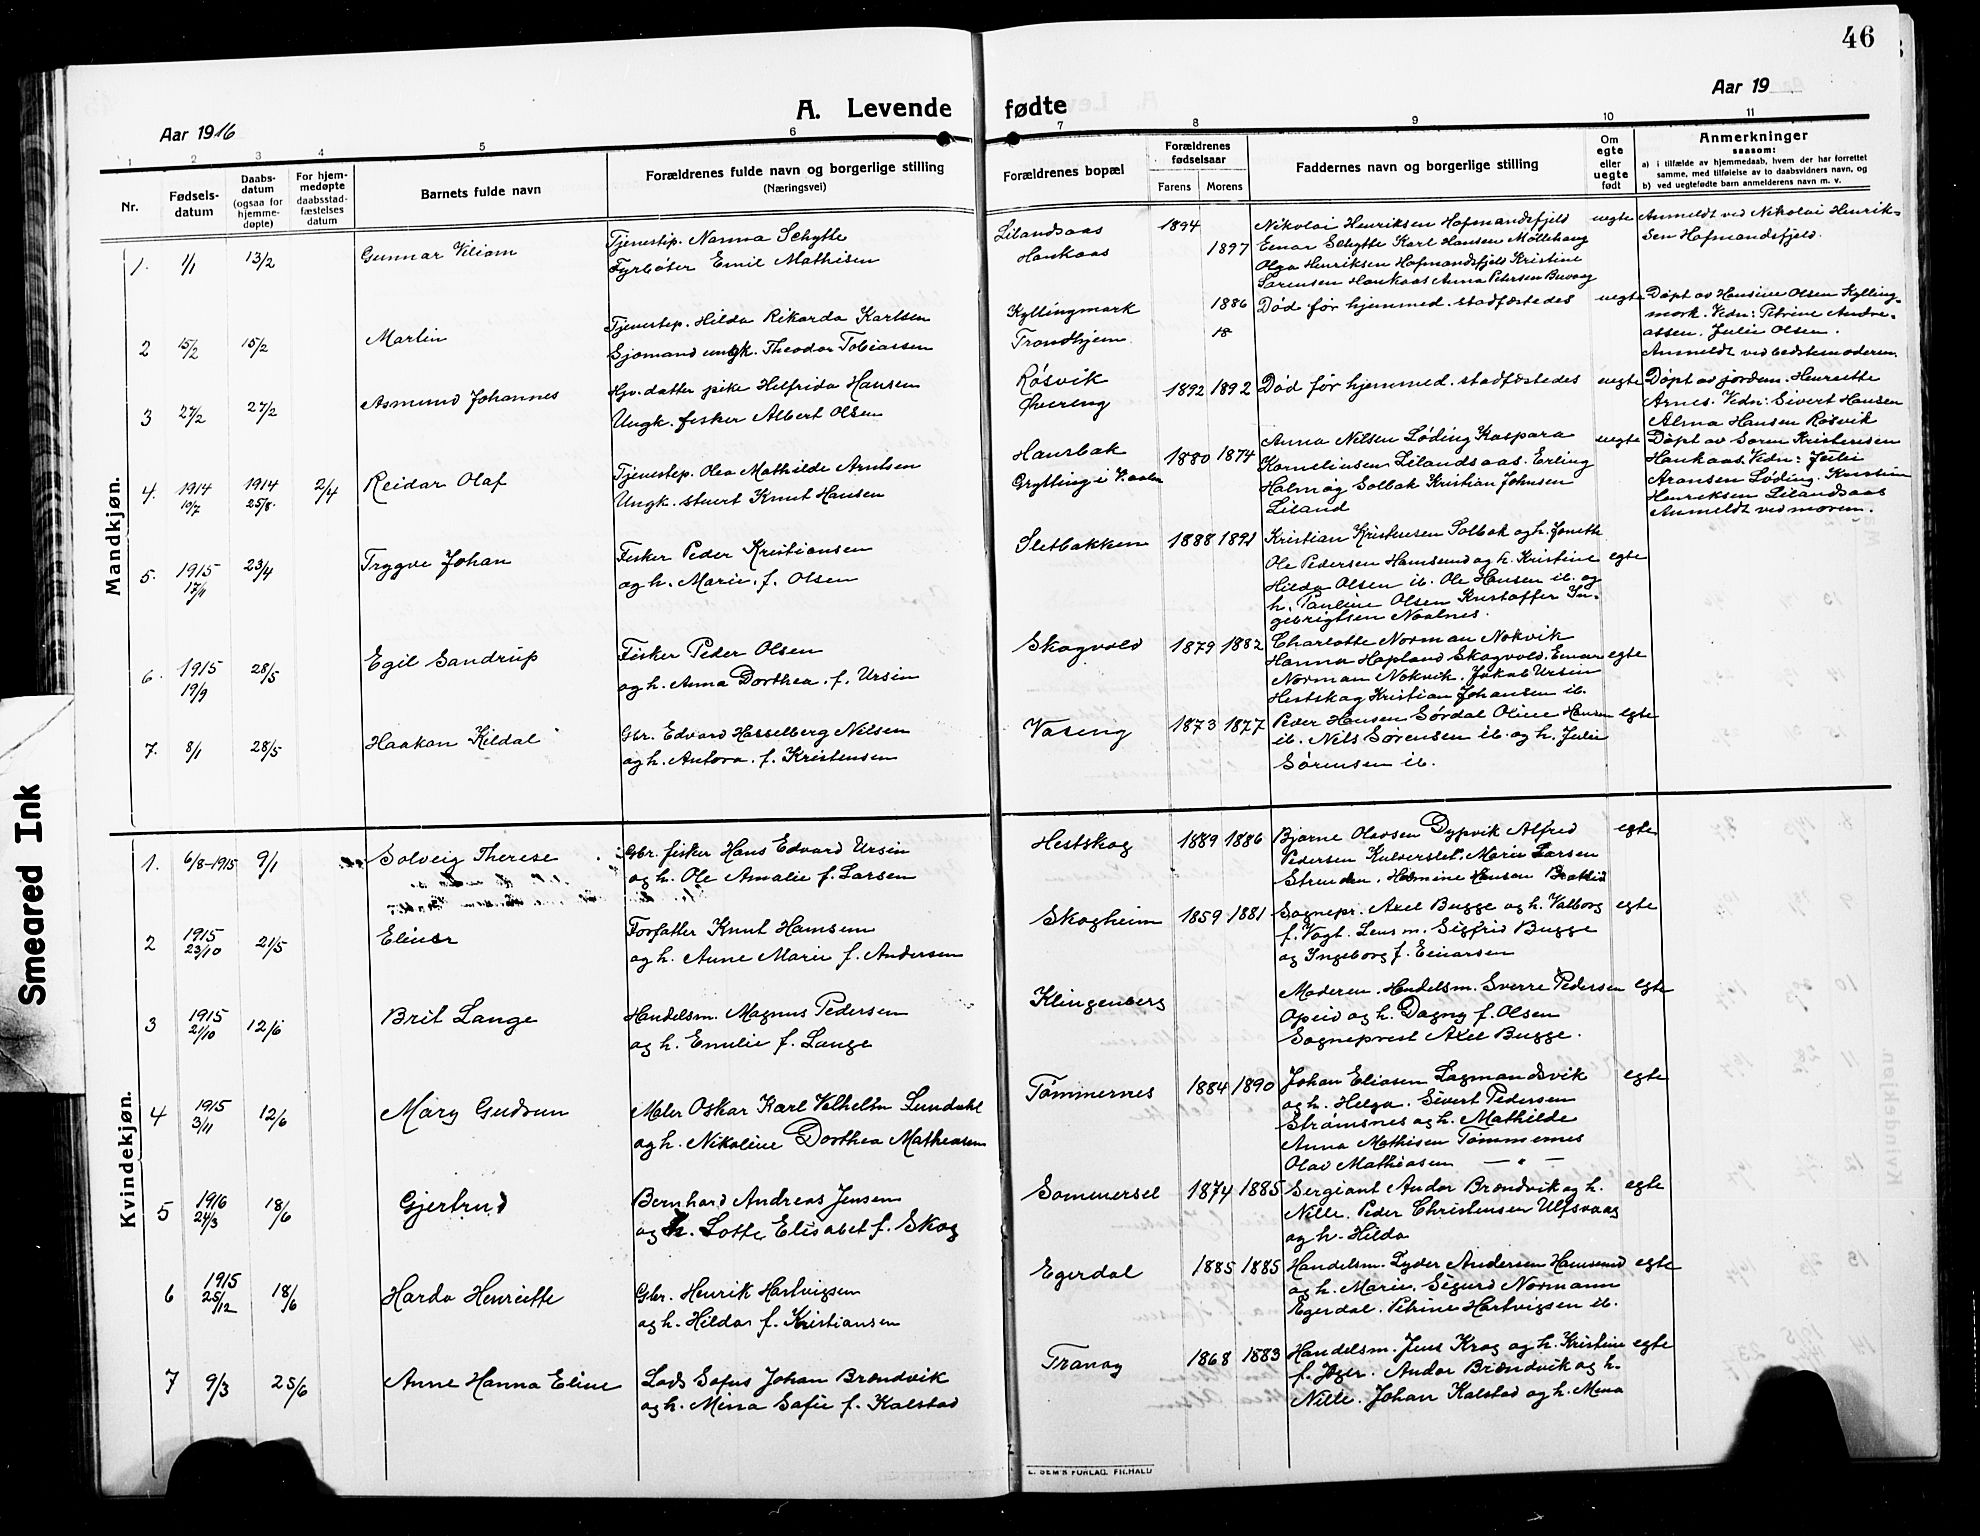 46
Aar 1916
A. Levende fødte
Aar 19
1 2 3 4 5 6 7 8 9 10 11
Nr.
Fødsels-
datum
Daabs-
datum
(ogsaa for
hjemme-
døpte)
For hjem-
medøpte
daabsstad-
fæstelses
datum
Barnets fulde navn
Forældrenes fulde navn og borgerlige stilling
(Næringsvei)
Forældrenes bopæl
Forældrenes
fødselsaar
Farens Morens
Faddernes navn og borgerlige stilling
Om
egte
eller
uegte
født
Anmerkninger
saasom:
a) i tilfælde av hjemmedaab, hvem der har forrettet
samme, med tilføielse av to daabsvidners navn, og
b) ved uegtefødte barn anmelderens navn m. v.
Mandkjøn.
1. 1/1 13/2 Gunnar Viliam
Tjenestep. Nanna Schytte
Fyrbøter Emil Mathisen
Lilandsaas 1894
Haukaas 1897
Nikolai Henriksen Hafmandsfjeld
Einar Schytte Karl Hansen Møllehaug
Olga Henriksen Hafmandsfjeld Kristine
Sørensen Haukaas Anna Petersen Buvaag
uegte
Anmeldt ved Nikolai Henrik-
sen Hafmandsfjeld.
2 15/2 15/2 Martin
Tjenestep. Hilda Rikarda Karlsen
Sjømand ungk. Theodor Tobiassen
Kyllingmark 1886
Trondhjem 18
Død før hjemmed. stadfæstedes
uegte
Døpt av Hansine Olsen Kylling-
mark. Vidn: Petrine Andre-
assen. Julie Olsen.
Anmeldt ved bedstemoderen.
3 27/2 27/2 Asmund Johannes
Hjv. datter pike Helfrida Hansen
Ungk. fisker Albert Olsen
Røsvik
Øvereng
1892 1892
Død før hjemmed. stadfæstedes
uegte
Døpt av jordem. Henriette
Arnes. Vidn: Sivert Hansen
Alma Hansen Røsvik
4. 1914 10/7 1914 25/8. 2/4 Reidar Olaf
Tjenestep. Olea Mathilde Arntsen
Ungk. stuert Knut Hansen
Haugbak
Grytting i V.aalen
1880 1874
Anna Nilsen Løding Kaspara
Korneliusen Lilandsaas. Erling
Halmøg Solbak Kristian Johnsen
Liland
uegte
Døpt av Søren Kristensen
Haukaas. Vidn: Julie
Aronsen Løding. Kristine
Henriksen Lilandsaas
Anmeldt ved moren.
5. 1915 17/11 23/4 Trygve Johan
Fisker Peder Kristiansen
og h. Marie. f. Olsen
Sletbakken 1888 1891
Kristian Kristensen Solbak og h. Jonette
Ole Pedersen Hamsund og h. Kristine
Hilda Olsen ib. Ole Hansen ib. og
h. Pauline Olsen Kristoffer In-
gebrigtsen Naalnes.
egte
6. 1915 19/9 28/5 Egil Sandrup
Fisker Peder Olsen
og h. Anna Dorthea. f. Ursin
Skogvold 1879 1882
Charlotte Norman Nokvik
Hanna Hopland Skogvold. Einar
Norman Nokvik. Jakob Ursin
Hestskog Kristian Johansen ib.
egte
7. 8/1 28/5 Haakon Kildal
Gbr. Edvard Hasselberg Nilsen
og h. Antora. f. Kristensen
Vaseng 1873 1877
Peder Hansen Sørdal Oline Hansen
ib. Nils Sørensen ib. og h. Julie
Sørensen ib.
egte
Kvindekjøn.
1. 6/8-1915 9/1 Solveig Therese
Gbr. fisker Hans Edvard Ursin
og h. Ole Amalie f. Larsen
Hestskog 1889 1886
Bjarne Olavsen Dypvik Alfred
Pedersen Kulverslet. Marie Larsen
Stranden. Helmine Hansen Brattlid
egte
2 1915 23/10 21/5 Elinor
Forfatter Knut Hamsun
og h. Anne Marie f. Andersen
Skogheim 1859 1881
Sognepr. Axel Bugge og h. Valborg
f. Vogt. Lensm. Sigfrid Bugge
og Ingeborg f. Einarsen
egte
3 1915 21/10 12/6 Brit Lange
Handelsm. Magnus Pedersen
og h. Emilie f. Lange
Klingenberg
Moderen. Handelsm. Sverre Pedersen
Opeid og h. Dagny f. Olsen
Sogneprest Axel Bugge.
egte
4 1915 3/11 12/6 Mary Gudrun
Maler Oskar Karl Vilhelm Lundahl
og h. Nikoline Dorthea Matheasen
Tømmernes 1884 1890
Johan Eliasen Lagmandsvik
og h. Helga. Sivert Pedersen
Strømsnes og h. Mathilde
Anna Mathisen Tømmernes
Olav Mathiasen — " —
egte
5 1916 24/3 18/6 Gjertrud
Bernhard Andreas Jensen
og h. Lotte Elisabet f. Skog
Sommersel 1874 1885
Sergiant Andor Brændvik og h.
Nille. Peder Christensen Ulfsvaag
og h. Hilda
egte
6 1915 25/12 18/6 Harda Henriette
Gbr. Henrik Hartvigsen
og h. Hilda f. Kristiansen
Egerdal 1885 1885
Handelsm. Lyder Andersen Hamsund
og h. Marie. Sigurd Normann
Egerdal. Petrine Hartvigsen ib.
egte
7 9/3 25/6 Anne Hanna Eline
Lods Sofus Johan Brændvik
og h. Mina Sofie f. Kalstad
Tranøy 1868 1883
Handelsm. Jens Krog og h. Kristine
f. Jæger. Andor Brændvik og h.
Nille. Johan Kalstad og h. Mina
egte
E. SEM'S FORLAG, FR.HALD
Smeared Ink